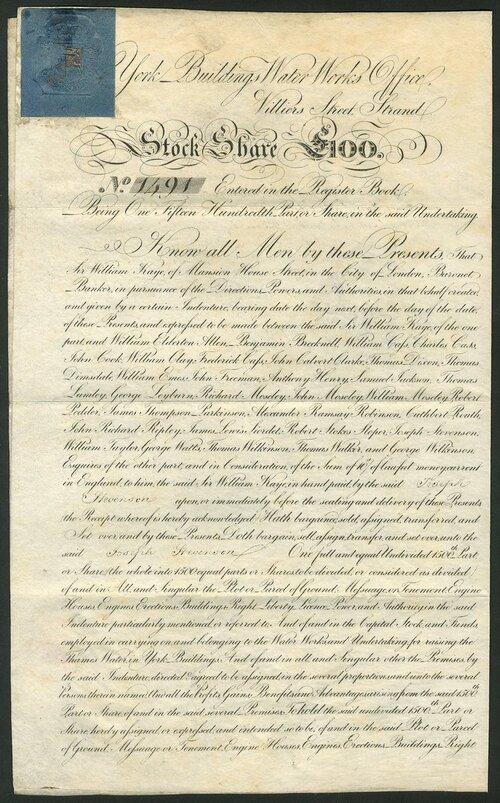 York Buildings Water Works Office,
Villiers Street, Strand
Stock Share £100.
No. 1491 Entered in the Register Book
Being One Fifteen Hundredth Part, or Share, in the said Undertaking.
Know all Men by these Presents, That
Sir William Kaye, of Mansion House Street, in the City of London, Baronet
Banker, in pursuance of the Directions, Powers, and Authorities, in that behalf created
and given by a certain Indenture, bearing date the day next before the day of the date
of these Presents, and expressed to be made between the said Sir William Kaye, of the one
part, and William Elderton Allen, Benjamin Brecknell, William Cass, Charles Cass,
John Cook, William Clay, Frederick Cass, John Calvert Clarke, Thomas Dixon, Thomas
Dimsdale, William Emes, John Freeman, Anthony Henry, Samuel Jackson, Thomas
Lumley, George Leyburn, Richard Moseley, John Moseley, William Moseley, Robert
Pedder, James Thompson Parkinson, Alexander Ramsay Robinson, Cuthbert Renth,
John Richard Ripley, James Lewis Tordet, Robert Stokes Hoper, Joseph Stevenson,
William Taylor, George Watts, Thomas Wilkinson, Thomas Walker, and George Wilkinson,
Esquires of the other part, and in Consideration, of the Sum of 10s. of Lawful money current
in England, to him, the said Sir William Kaye, in hand, paid by the said Joseph
Stevenson upon, or immediately before the sealing and delivery of these Presents
the Receipt whereof is hereby acknowledged Hath bargained, sold, assigned, transferred, and
Set over, and by these Presents Doth bargain, sell, assign, transfer, and set over, unto the
said Joseph Stevenson One full and equal Undivided 1500th Part
or Share the whole into 1500 equal parts or Shares to be divided, or considered as divided
of and in All and Singular the Plot or Parcel of Ground, Messuage, or Tenement Engine
Houses, Engines, Erections, Buildings, Right, Liberty, Licence, Power, and Authority, in the said
Indenture particularly mentioned or referred to And of and in the Capital Stock, and Funds,
employed in carrying on, and belonging to the Water Works, and Undertaking for raising the
Thames Water, in York Buildings And of and in all and Singular other the Premises, by
the said Indenture, directed & agreed to be assigned, in the several proportions, and unto the several
Persons therein named, And all the Profits, Gains, Benefits, and Advantages arising from the said 1500th
Part or Share, of and in the said several Premises To hold the said undivided 1500th Part or
Share, hereby assigned or expressed, and intended so to be, of and in the said Plot or Parcel
of Ground, Messuage or Tenement, Engine Houses, Engines, Erections, Buildings, Right